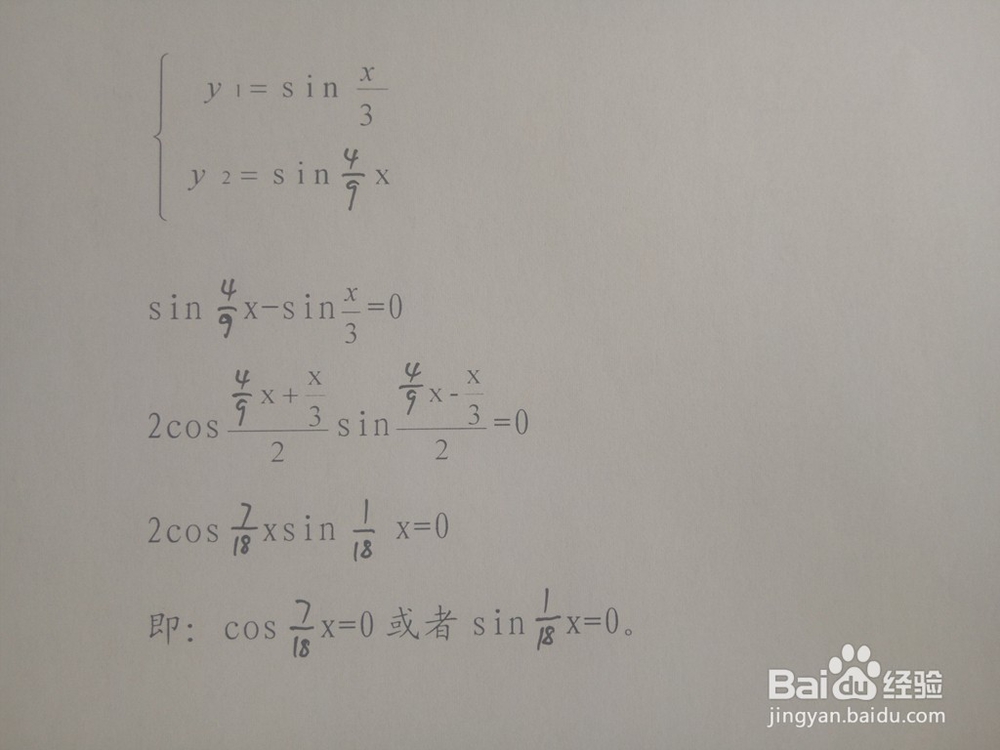 y 1 = sin x/3
y 2 = sin 4/9 x
sin 4/9 x-sin x/3 =0
2cos (4/9 x + x/3)/2 sin (4/9 x - x/3)/2 =0
2cos 7/18 xsin 1/18 x=0
即: cos 7/18 x=0 或者 sin 1/18 x=0。
Baidu经验
jingyan.baidu.com